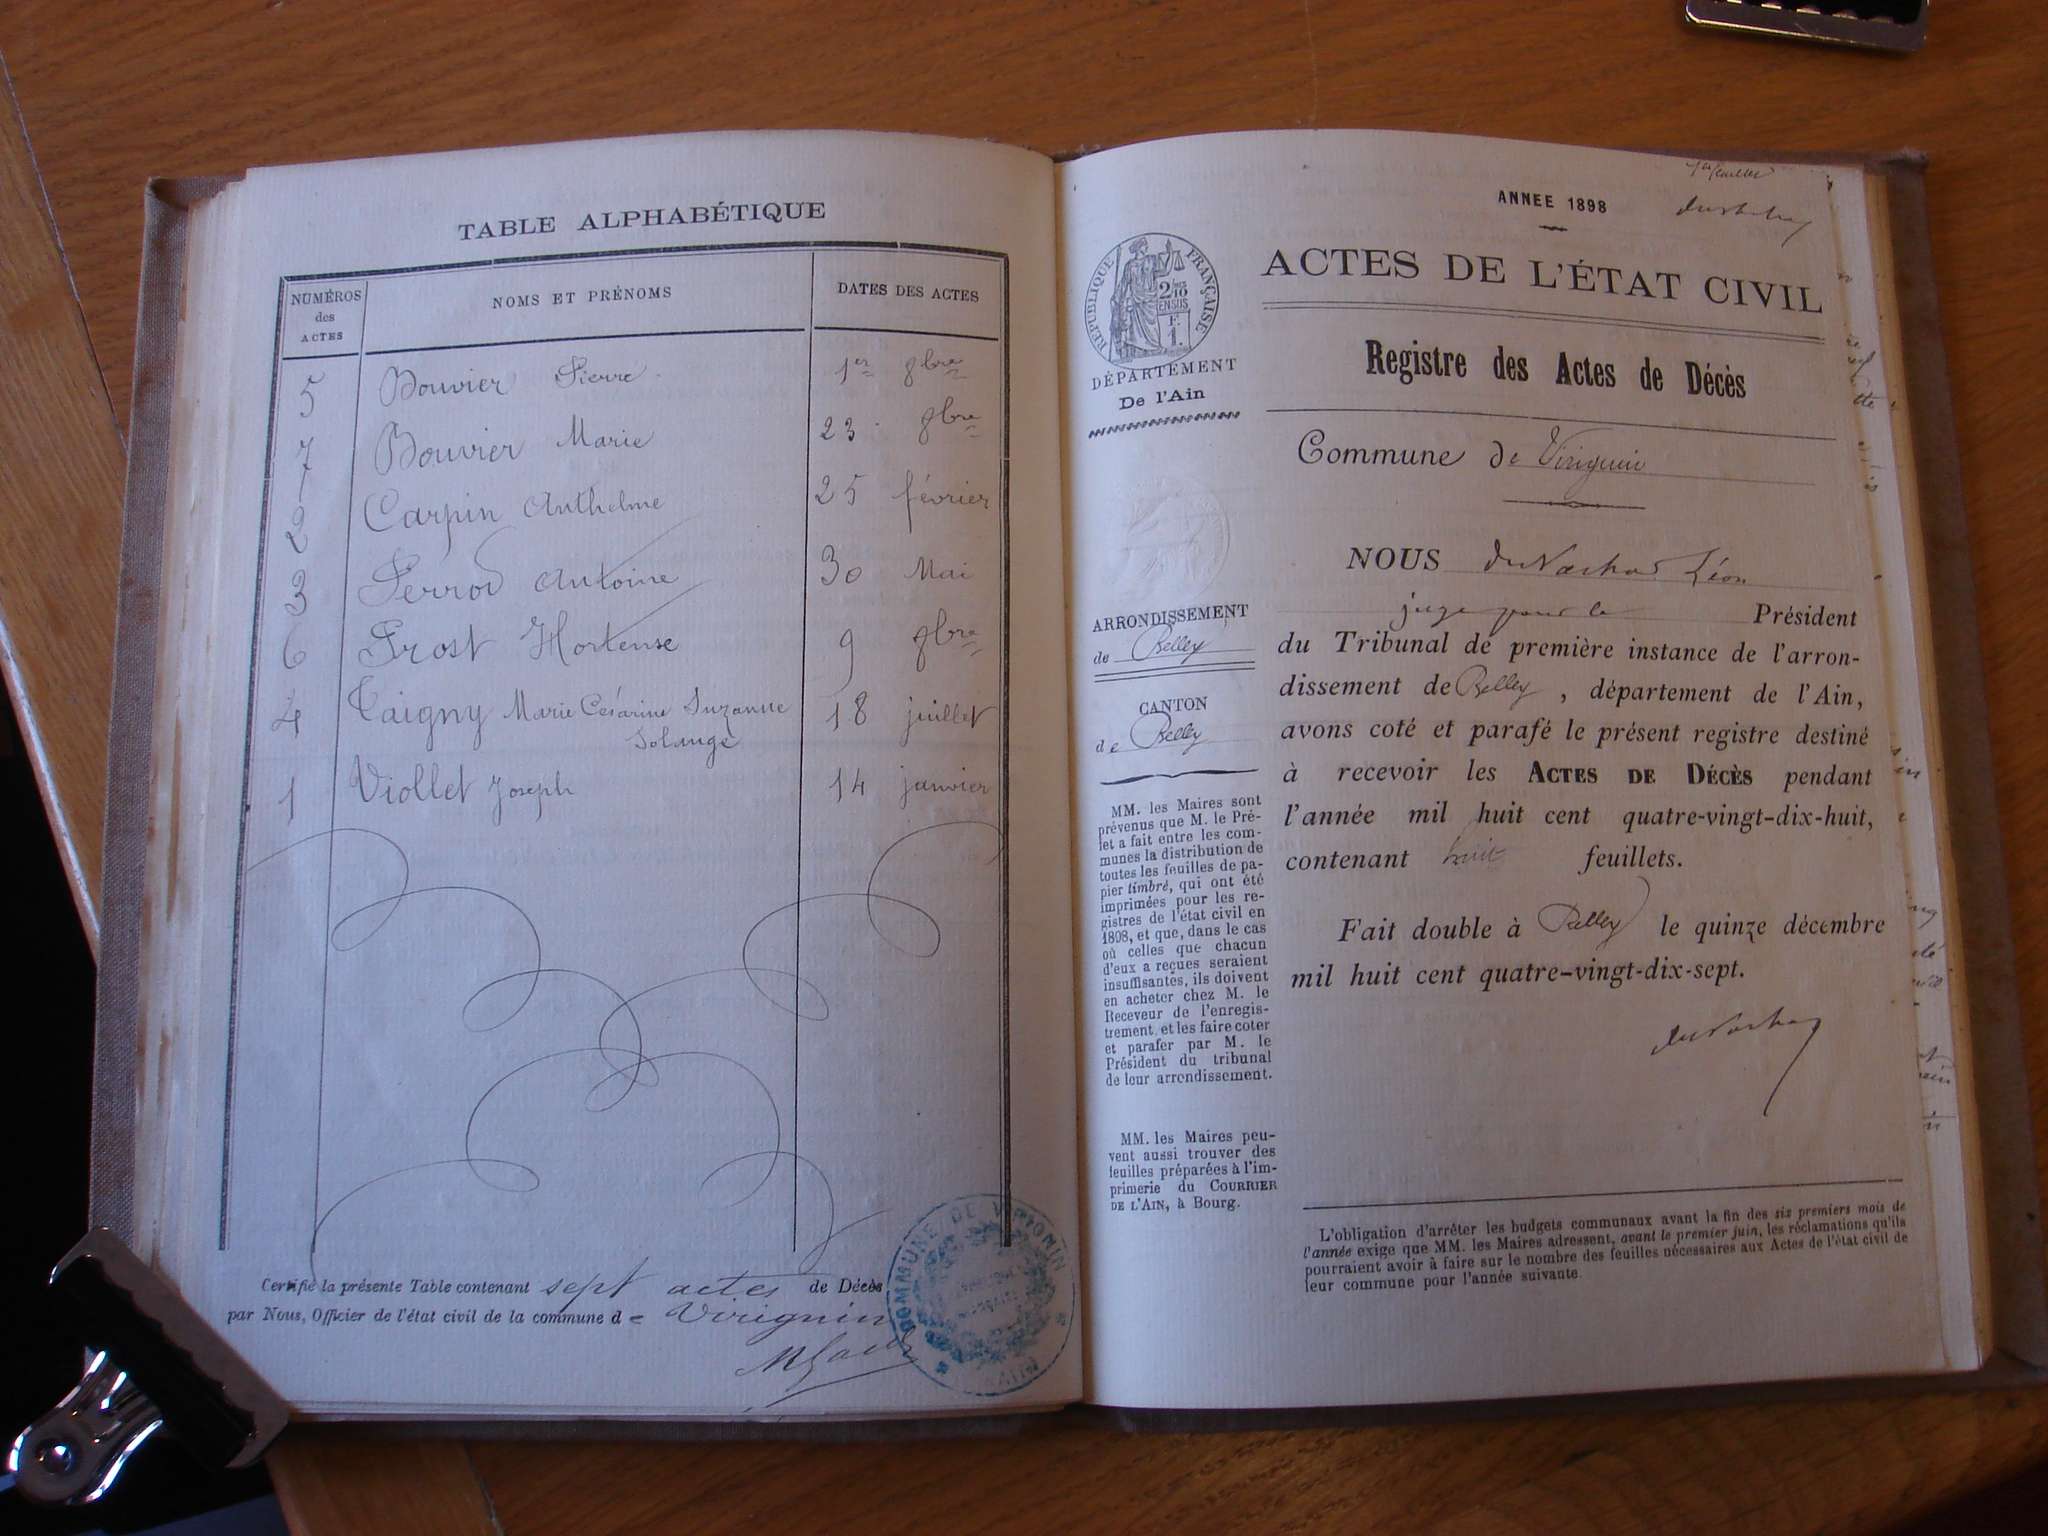 TABLE ALPHABÉTIQUE
NUMÉROS des ACTES NOMS ET PRÉNOMS DATES DES ACTES
5 Bouvier Pierre 1er 9bre
7 Bouvier Marie 23 9bre
2 Carpin Anthelme 25 février
3 Perrod Antoine 30 Mai
6 Prost Hortense 9 9bre
4 Taigny Marie Césarine Suzanne 18 juillet
Solange
1 Viollet Joseph 14 janvier
Certifié la présente Table contenant sept actes de Décès
par Nous, Officier de l'état civil de la commune de Virignin
COMMUNE DE VIRIGNIN
AIN
1er feuillet
ANNEE 1898
RÉPUBLIQUE FRANÇAISE
2/10 EN SUS
F. 1.
ACTES DE L'ÉTAT CIVIL
Registre des Actes de Décès
DÉPARTEMENT
De l'Ain
Commune de Virignin
ARRONDISSEMENT
de Belley
CANTON
de Belley
MM. les Maires sont
prévenus que M. le Pré-
fet a fait entre les com-
munes la distribution de
toutes les feuilles de pa-
pier timbré, qui ont été
imprimées pour les re-
gistres de l'état civil en
1898, et que, dans le cas
où celles que chacun
d'eux a reçues seraient
insuffisantes, ils doivent
en acheter chez M. le
Receveur de l'enregis-
trement et les faire coter
et parafer par M. le
Président du tribunal
de leur arrondissement.
MM. les Maires peu-
vent aussi trouver des
feuilles préparées à l'im-
primerie du COURRIER
DE L'AIN, à Bourg.
NOUS Léon
juge pour le Président
du Tribunal de première instance de l'arron-
dissement de Belley, département de l'Ain,
avons coté et parafé le présent registre destiné
à recevoir les ACTES DE DÉCÈS pendant
l'année mil huit cent quatre-vingt-dix-huit,
contenant huit feuillets.
Fait double à Belley le quinze décembre
mil huit cent quatre-vingt-dix-sept.
L'obligation d'arrêter les budgets communaux avant la fin des six premiers mois de
l'année exige que MM. les Maires adressent, avant le premier juin, les réclamations qu'ils
pourraient avoir à faire sur le nombre des feuilles nécessaires aux Actes de l'état civil de
leur commune pour l'année suivante.